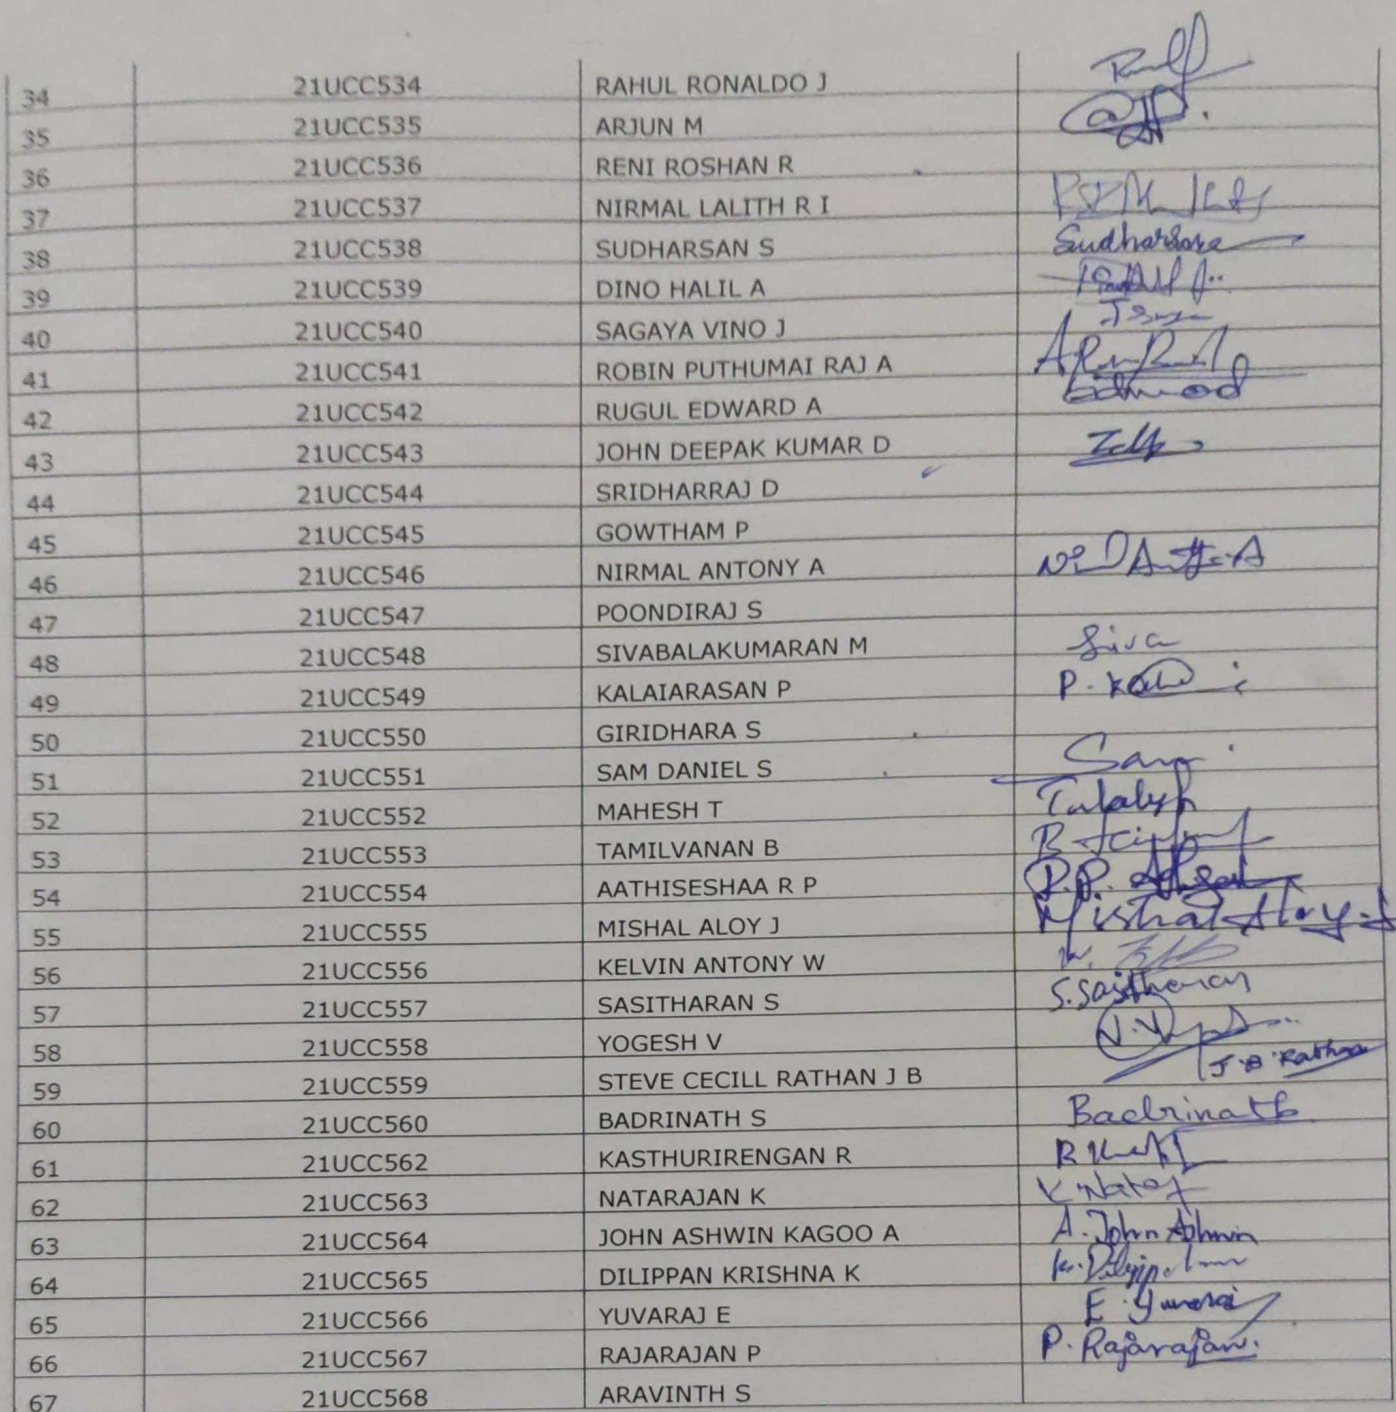 34 21UCC534 RAHUL RONALDO J
35 21UCC535 ARJUN M
36 21UCC536 RENI ROSHAN R
37 21UCC537 NIRMAL LALITH R I
38 21UCC538 SUDHARSAN S
39 21UCC539 DINO HALIL A
40 21UCC540 SAGAYA VINO J
41 21UCC541 ROBIN PUTHUMAI RAJ A
42 21UCC542 RUGUL EDWARD A
43 21UCC543 JOHN DEEPAK KUMAR D
44 21UCC544 SRIDHARRAJ D
45 21UCC545 GOWTHAM P
46 21UCC546 NIRMAL ANTONY A
47 21UCC547 POONDIRAJ S
48 21UCC548 SIVABALAKUMARAN M Siva
49 21UCC549 KALAIARASAN P
50 21UCC550 GIRIDHARA S
51 21UCC551 SAM DANIEL S Sam
52 21UCC552 MAHESH T
53 21UCC553 TAMILVANAN B
54 21UCC554 AATHISESHAA R P
55 21UCC555 MISHAL ALOY J Mishal Aloy.J
56 21UCC556 KELVIN ANTONY W
57 21UCC557 SASITHARAN S S.Sasitharan
58 21UCC558 YOGESH V
59 21UCC559 STEVE CECILL RATHAN J B J.B.Rathan
60 21UCC560 BADRINATH S Badrinath
61 21UCC562 KASTHURIRENGAN R
62 21UCC563 NATARAJAN K K.Nataj
63 21UCC564 JOHN ASHWIN KAGOO A A.John Ashwin
64 21UCC565 DILIPPAN KRISHNA K
65 21UCC566 YUVARAJ E E.Yuvaraj
66 21UCC567 RAJARAJAN P P.Rajarajan.
67 21UCC568 ARAVINTH S